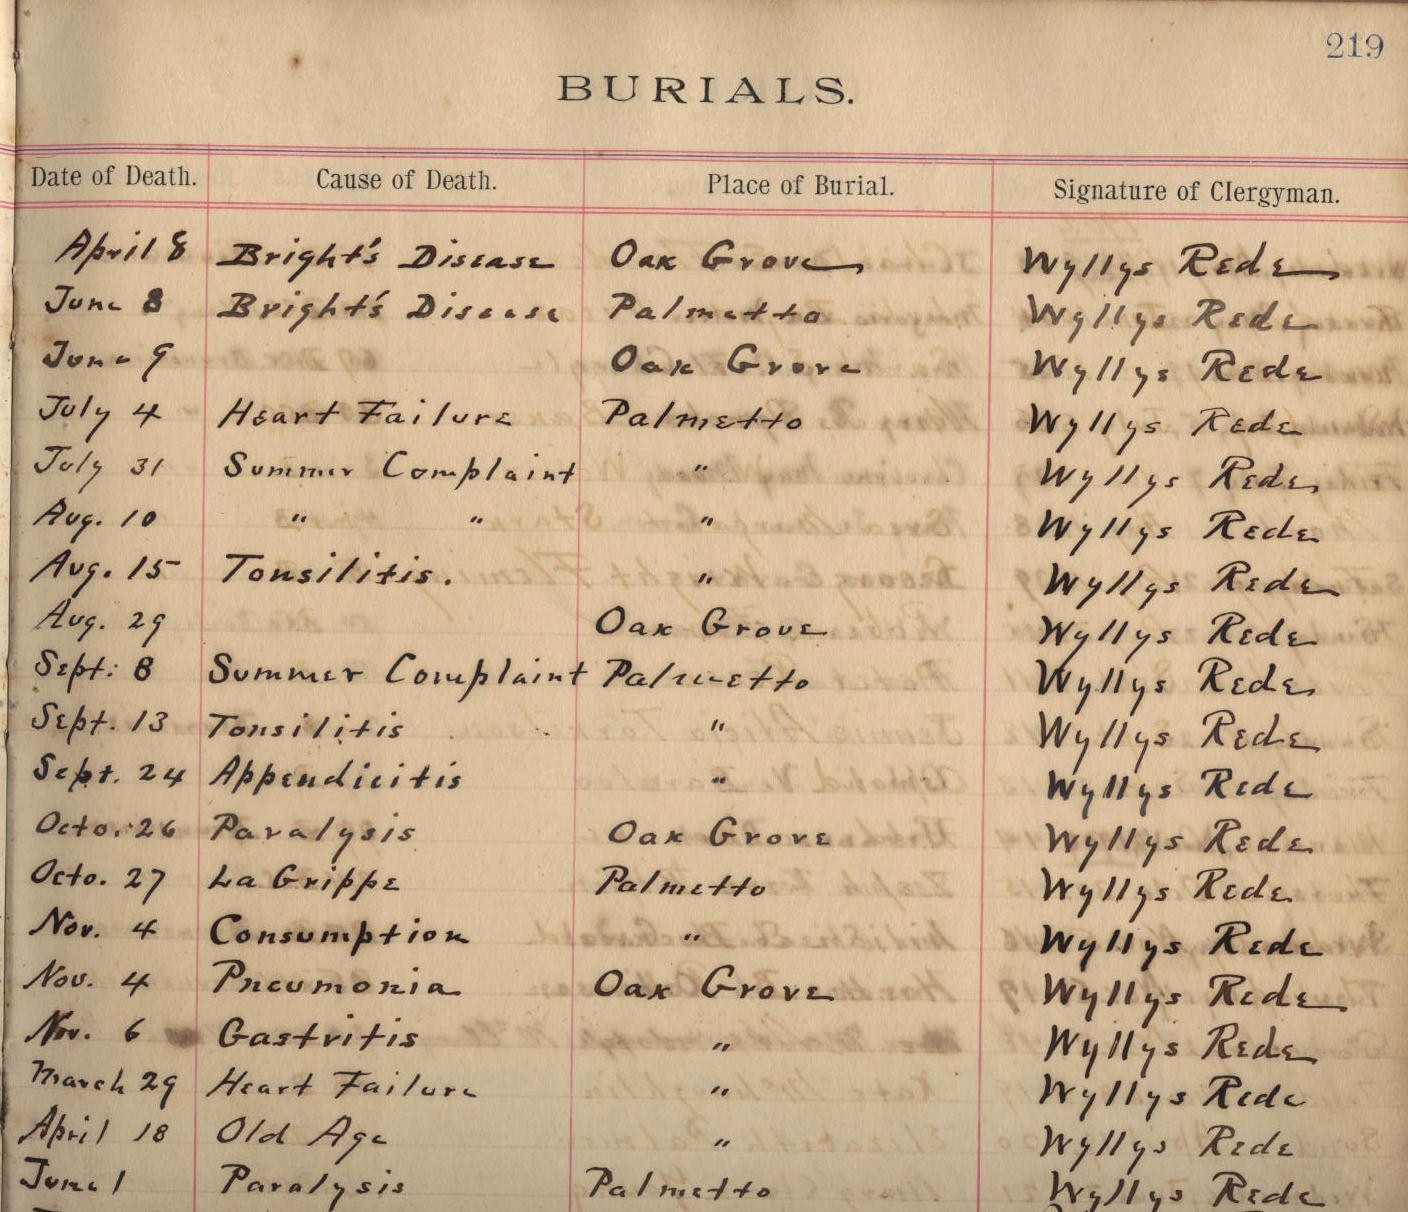 219
BURIALS.
Date of Death. Cause of Death. Place of Burial. Signature of Clergyman.
April 8 Bright's Disease Oak Grove Wyllys Rede
June 8 Bright's Disease Palmetto Wyllys Rede
June 9 Oak Grove Wyllys Rede
July 4 Heart Failure Palmetto Wyllys Rede
July 31 Summer Complaint " Wyllys Rede
Aug. 10 " " " Wyllys Rede
Aug. 15 Tonsilitis. " Wyllys Rede
Aug. 29 Oak Grove Wyllys Rede
Sept. 8 Summer Complaint Palmetto Wyllys Rede
Sept. 13 Tonsilitis " Wyllys Rede
Sept. 24 Appendicitis " Wyllys Rede
Octo. 26 Paralysis Oak Grove Wyllys Rede
Octo. 27 La Grippe Palmetto Wyllys Rede
Nov. 4 Consumption " Wyllys Rede
Nov. 4 Pneumonia Oak Grove Wyllys Rede
Nov. 6 Gastritis " Wyllys Rede
March 29 Heart Failure " Wyllys Rede
April 18 Old Age " Wyllys Rede
June 1 Paralysis Palmetto Wyllys Rede